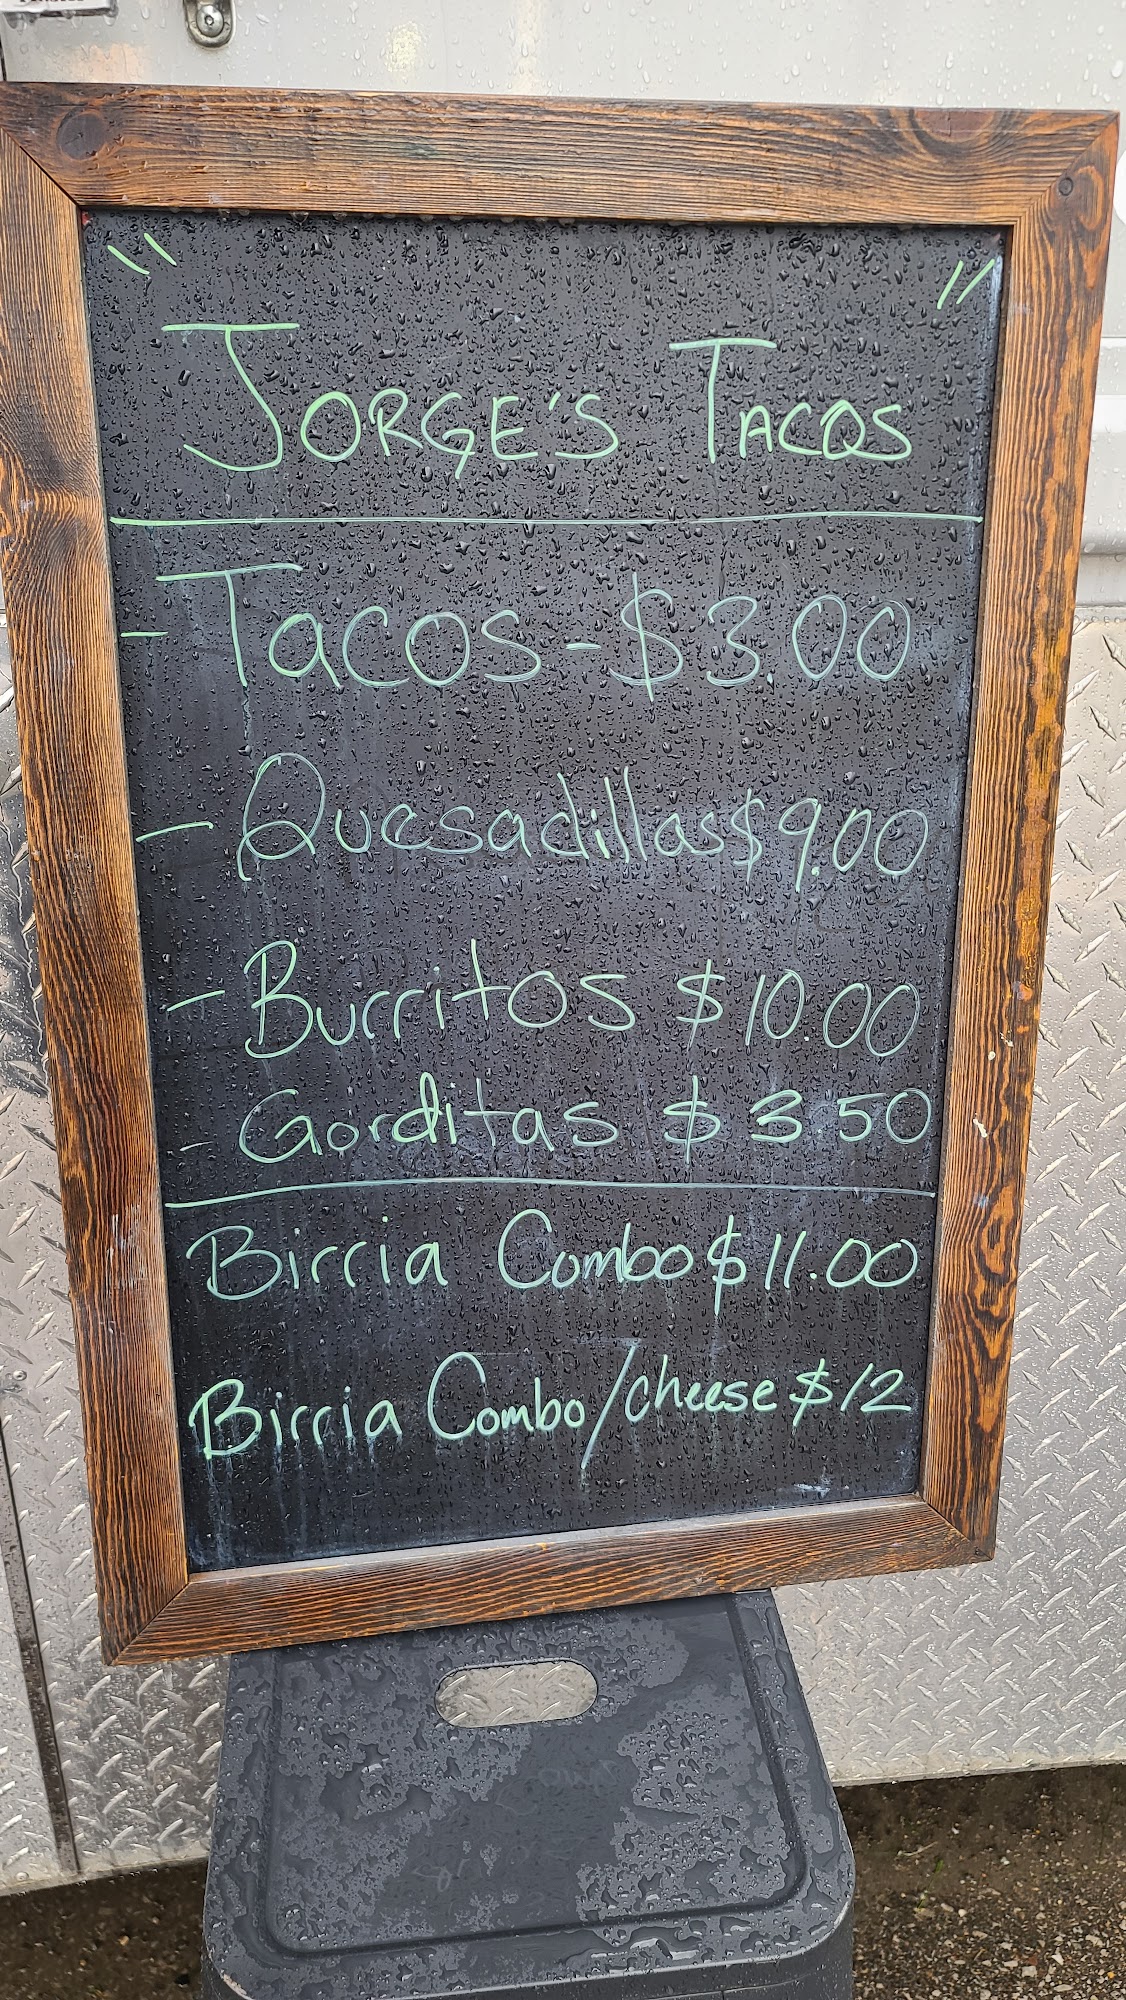 " "
JORGE'S TACOS
- Tacos - $3.00
- Quesadillas $9.00
- Burritos $10.00
- Gorditas $3.50
Birria Combo $11.00
Birria Combo/cheese $12